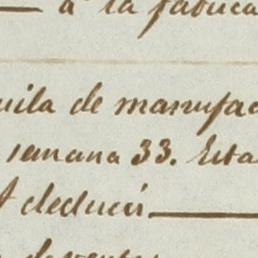 a la fabrica
uila de manufac
semana 33. Esta
deducn